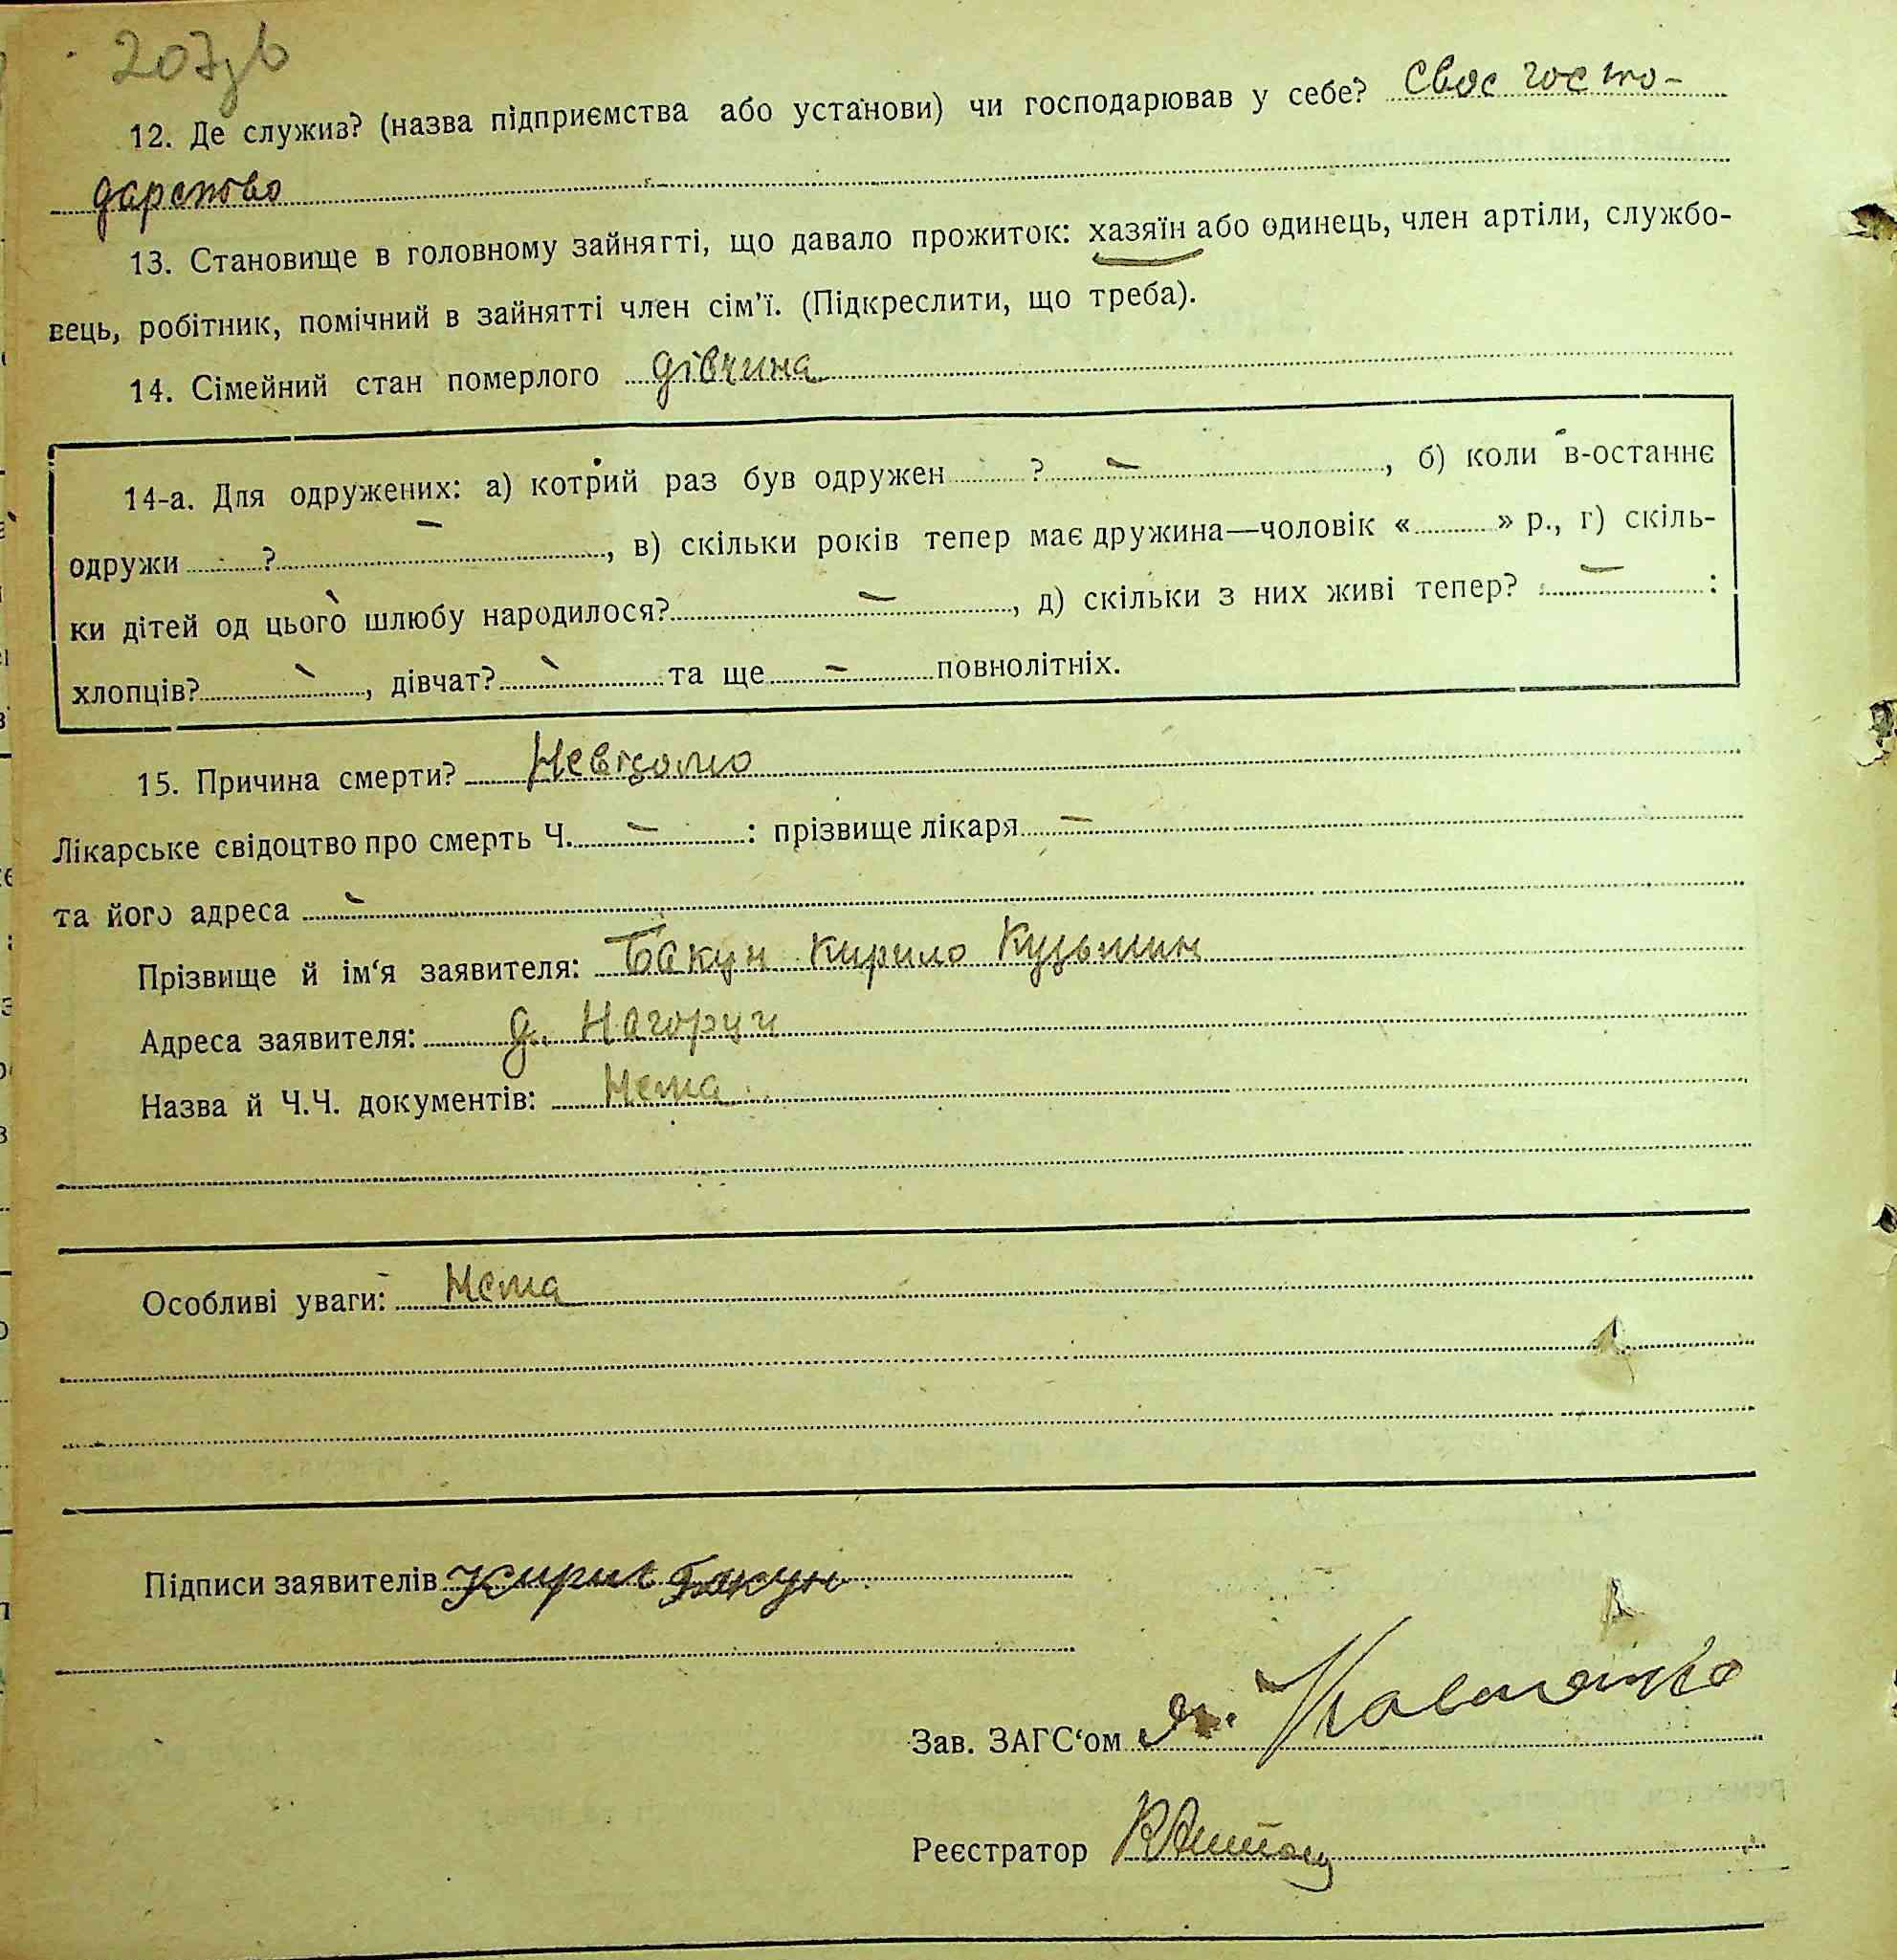 207зв
12. Де служив? (назва підприємства або установи) чи господарював у себе? Своє госпо-
дарство
13. Становище в головному зайнятті, що давало прожиток: хазяїн або одинець, член артіли, службо-
вець, робітник, помічний в зайнятті член сім'ї. (Підкреслити, що треба).
14. Сімейний стан померлого дівчина
14-а. Для одружених: а) котрий раз був одружен ? –, б) коли в-останнє
одружи ? –, в) скільки років тепер має дружина—чоловік « » р., г) скіль-
ки дітей од цього шлюбу народилося? –, д) скільки з них живі тепер? – :
хлопців? –, дівчат? – та ще – повнолітніх.
15. Причина смерти? Невідомо
Лікарське свідоцтво про смерть Ч. – : прізвище лікаря –
та його адреса –
Прізвище й ім'я заявителя: Бакун Кирило Кузьмин
Адреса заявителя: д. Нагорци
Назва й Ч.Ч. документів: Нема
Особливі уваги: Нема
Підписи заявителів Кирил Бакун
Зав. ЗАГС'ом
Реєстратор